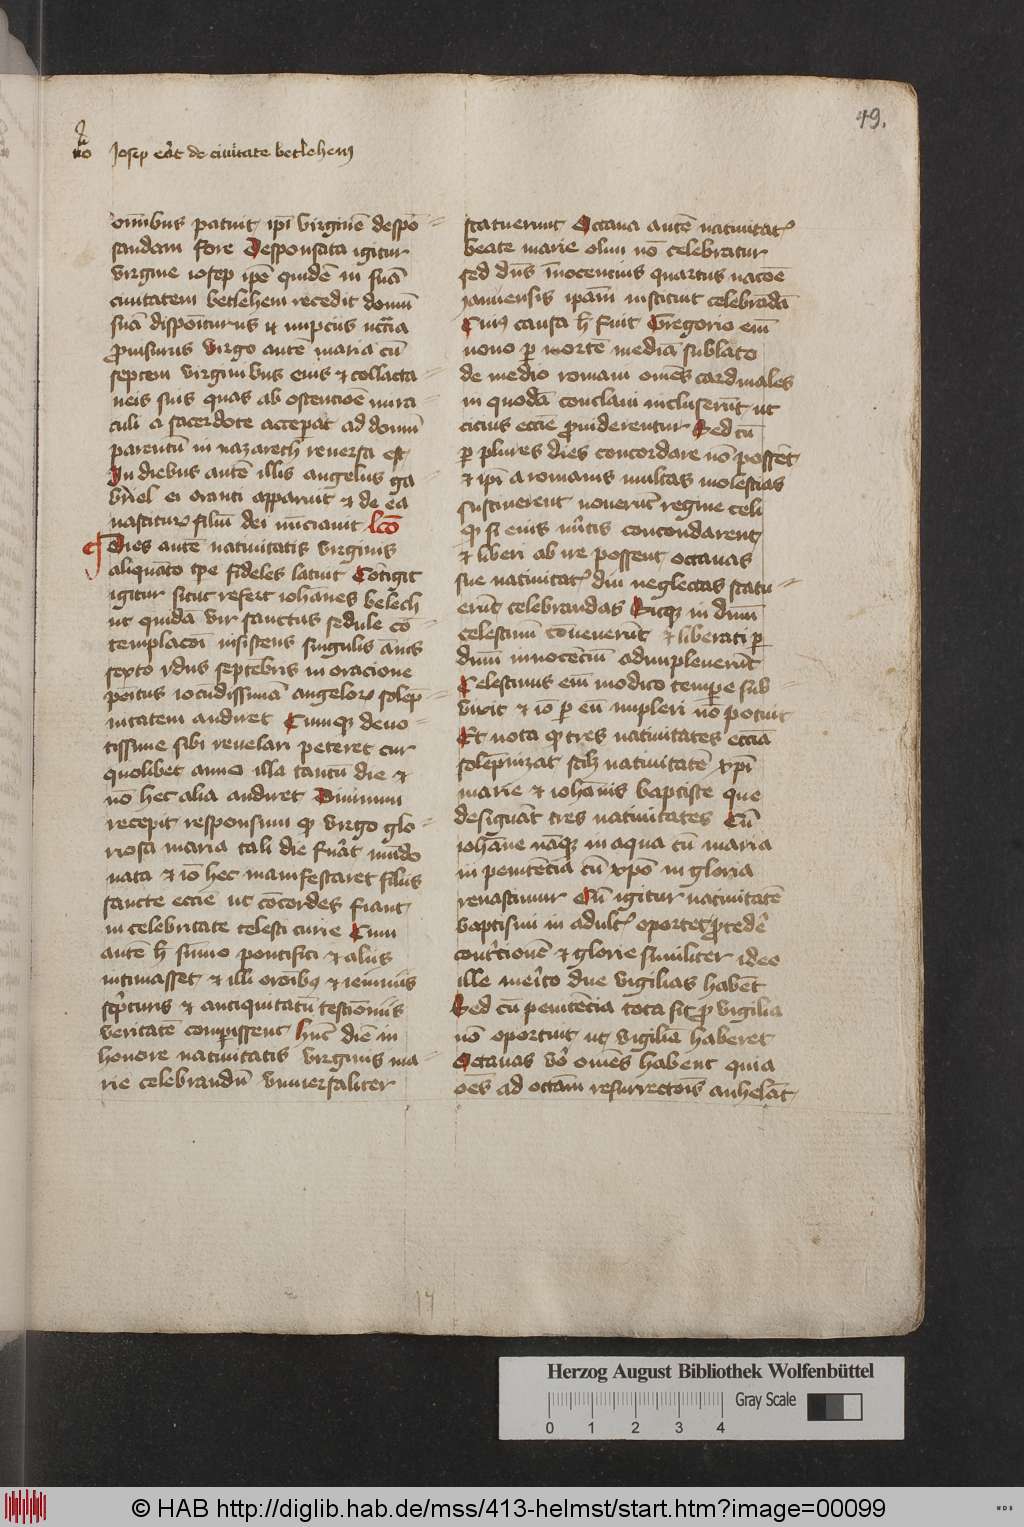 49.
no Josep erat de ciuitate betlehem
omībus patuit ipī virginē despō
sandam fore Desponsata igitur
virgine iosep ipē quidē in suā
ciuitatem betlehem recedit domū
suā dispoīturus et nupciis nc̄cia
prouisurus virgo autē maria cū
septem virginibus euis et collacta
neis suis quas ab ostencioē mira
culi a sacerdote acceperat ad domū
parentū in nazareth reuersa est
In diebus autē illis angelus ga
briel ei oranti apparuit et de ea
nasciturū filiū dei nūciauit lcō
Dies autē natiuitatis virginis
aliquāto tpe fideles latuit Cōtigit
igitur sicut refert iohānes belech
ut quidā vir sanctus sedule cō
templacoī insistens singulis ānis
sexto ydus septēbris in oracione
positus iocūdissimā angelorū solēp
nitatem audiret Cumque deuo
tissime sibi reuelari peteret cur
quolibet anno illa tantū die et
nō hec alia audiret Diuinum
recepit responsum quod virgo glo
riosa maria tali die fuerat mūdo
nata et iō hec manifestaret filiis
sancte eccīe ut cōcordes fiant
in celebritate celesti curie Cum
autē hoc sūmo pontifici et aliis
intimasset et illi oroībus et ieiuniis
scripturis et antiquitatū testioniis
veritatē comperissent hūc diē in
honore natiuitatis virginis ma
rie celebrandū vniuersaliter
statuerunt Octaua autē natiuitatis
beate marie olim nō celebratur
sed dns īnocencius quartus nacoē
januensis ipām instituit celebrādā
Cuius causa hec fuit Gregorio eīm
nono per mortē mediā sublato
de medio romani omēs cardinales
in quodā conclaui incluserūt ut
cicius eccīe prouiderentur Sed cū
per plures dies concordare nō possēt
et ipī a romanis multas molestias
sustinerent nouerūt regine celi
quod si euis mītis concordarent
et liberi ab ire possent octauas
sue natiuitatis diu neglectas statu
erūt celebrandas Sicque in dnm̄
celestinū cōuenerūt et liberati per
dnm̄ innocēciū adimpleuerūt
Celestinus eīm modico tempore sub
vixit et iō per eū impleri nō potuit
Et nota quod tres natiuitates eccīa
solēpnizat scilicet natiuitatē xpī
marie et iohānis baptiste que
designāt tres natiuitates Cū
iohāne nāque in aqua cū maria
in penitēcia cū xpō in gloria
renascimur Cū igitur natiuitatē
baptismi in adultis oportet procedere
contricionē et glorie similiter ideo
ille merito due vigilias habēt
Sed cū penitēcia tota sit pro vigilia
nō oportuit ut vigiliā haberet
Octauas vero omēs habent quia
oēs ad octām resurrectoīs anhelāt
17
Herzog August Bibliothek Wolfenbüttel
Gray Scale
0 1 2 3 4
© HAB http://diglib.hab.de/mss/413-helmst/start.htm?image=00099